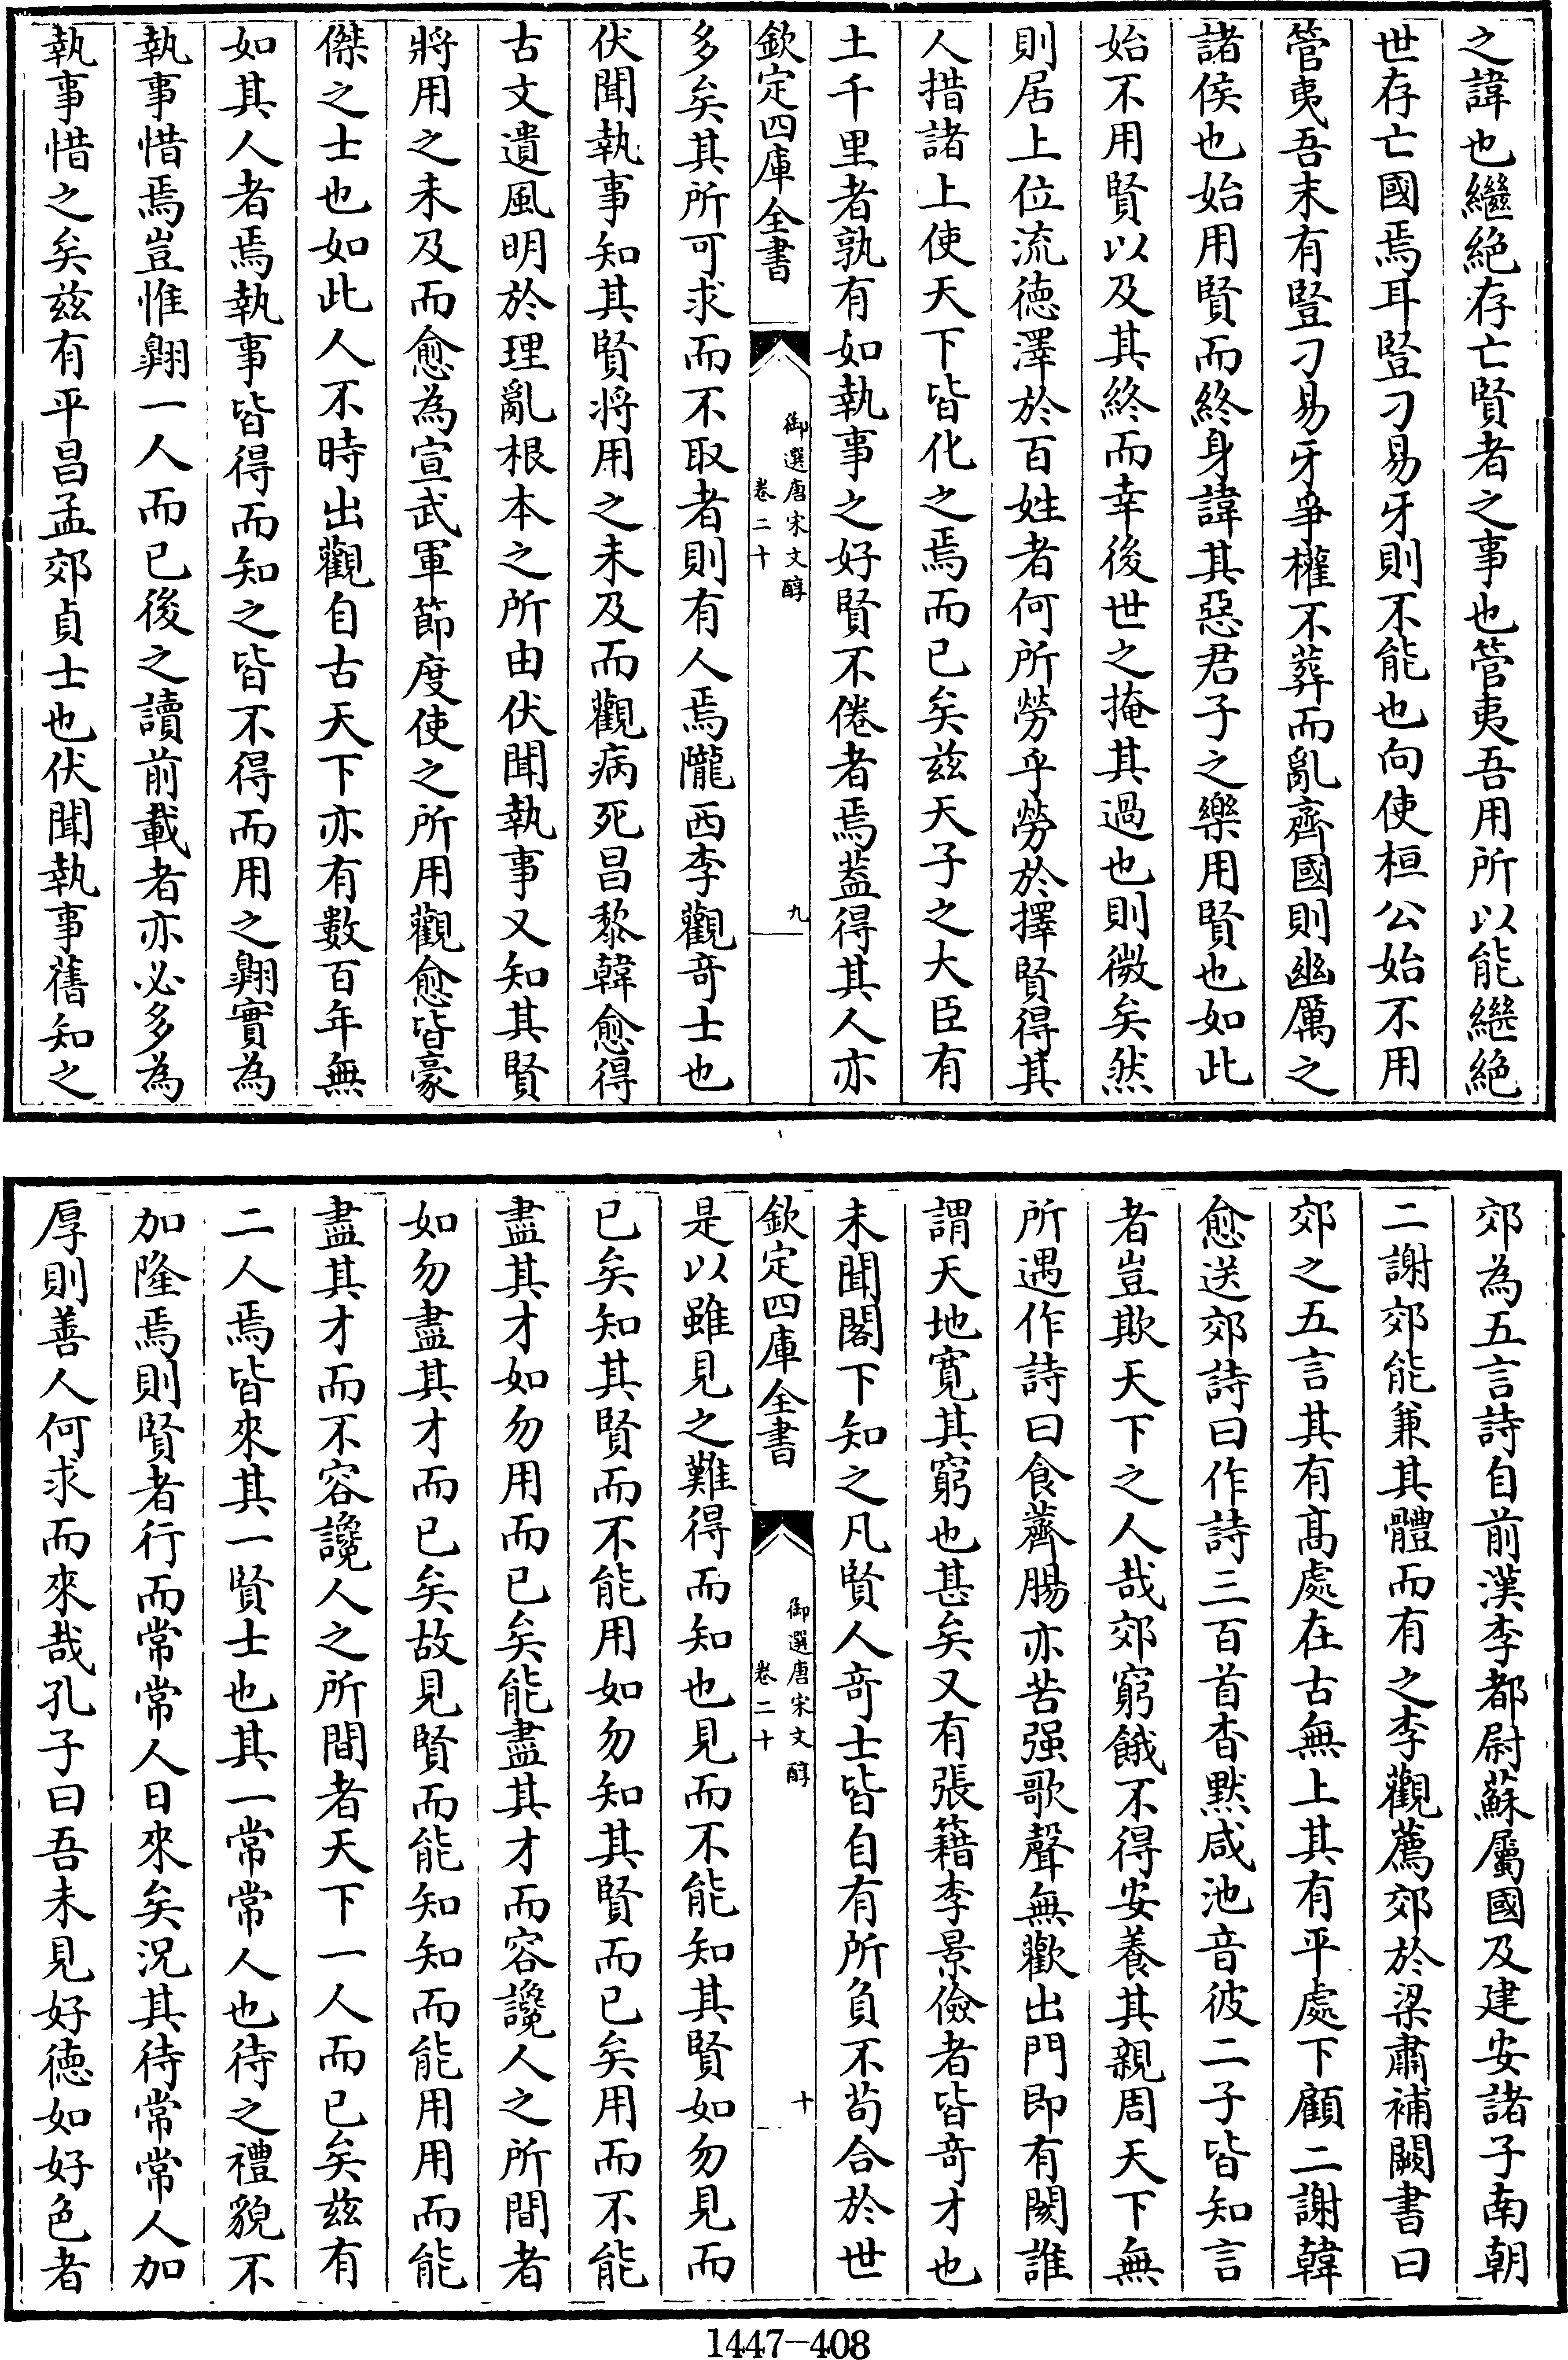 之諱也繼絶存亡賢者之事也管夷吾用所以能繼絶
世存亡國焉耳豎刁易牙則不能也向使桓公始不用
管夷吾末有豎刁易牙爭權不葬而亂齊國則幽厲之
諸侯也始用賢而終身諱其惡君子之樂用賢也如此
始不用賢以及其終而幸後世之掩其過也則微矣然
則居上位流德澤於百姓者何所勞乎勞於擇賢得其
人措諸上使天下皆化之焉而已矣兹天子之大臣有
土千里者孰有如執事之好賢不倦者焉葢得其人亦
欽定四庫全書
御選唐宋文醇
卷二十
九
多矣其所可求而不取者則有人焉隴西李觀竒士也
伏聞執事知其賢將用之未及而觀病死昌黎韓愈得
古文遺風明於理亂根本之所由伏聞執事又知其賢
將用之未及而愈為宣武軍節度使之所用觀愈皆豪
傑之士也如此人不時出觀自古天下亦有數百年無
如其人者焉執事皆得而知之皆不得而用之翺實為
執事惜焉豈惟翺一人而已後之讀前載者亦必多為
執事惜之矣兹有平昌孟郊貞士也伏聞執事舊知之
郊為五言詩自前漢李都尉蘇屬國及建安諸子南朝
二謝郊能兼其體而有之李觀薦郊於梁肅補闕書曰
郊之五言其有髙處在古無上其有平處下顧二謝韓
愈送郊詩曰作詩三百首杳黙咸池音彼二子皆知言
者豈欺天下之人哉郊窮餓不得安養其親周天下無
所遇作詩曰食薺腸亦苦强歌聲無歡出門即有閡誰
謂天地寛其窮也甚矣又有張籍李景儉者皆竒才也
未聞閣下知之凡賢人竒士皆自有所負不茍合於世
欽定四庫全書
御選唐宋文醇
卷二十
十
是以雖見之難得而知也見而不能知其賢如勿見而
已矣知其賢而不能用如勿知其賢而已矣用而不能
盡其才如勿用而已矣能盡其才而容讒人之所間者
如勿盡其才而已矣故見賢而能知知而能用用而能
盡其才而不容讒人之所間者天下一人而已矣兹有
二人焉皆來其一賢士也其一常常人也待之禮貌不
加隆焉則賢者行而常常人日來矣況其待常常人加
厚則善人何求而來哉孔子曰吾未見好德如好色者
1447-408